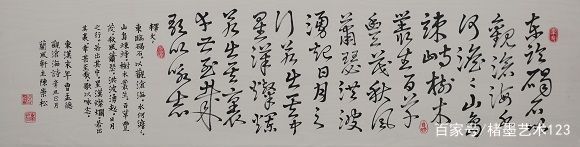 東臨碣石以
觀滄海水
何澹澹山島
竦峙樹木
叢生百草
豐茂秋風
蕭瑟洪波
湧起日月之
行若出其中
星漢燦爛
若出其裏
幸甚至哉
歌以詠志
釋文
東臨碣石以觀滄海水何澹澹
山島竦峙樹木叢生百草豐
茂秋風蕭瑟洪波湧起日月
之行若出其中星漢燦爛若出
其裏幸甚至哉歌以詠志
東漢末年曹孟德
觀滄海詩
蘭風軒主陳榮松
百家号/楮墨艺术123